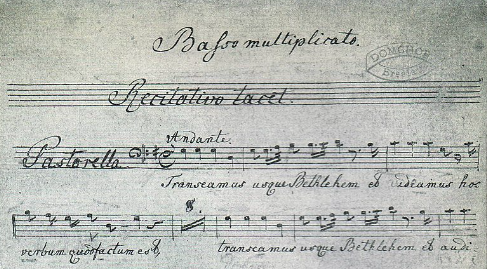 Basso multiplicato.
DOMCHOR
Breslau
Recitativo tacet.
Andante.
Pastorella
Transeamus usque Bethlehem et videamus hoc
8.
verbum quod factum est, transeamus usque Bethlehem et audi